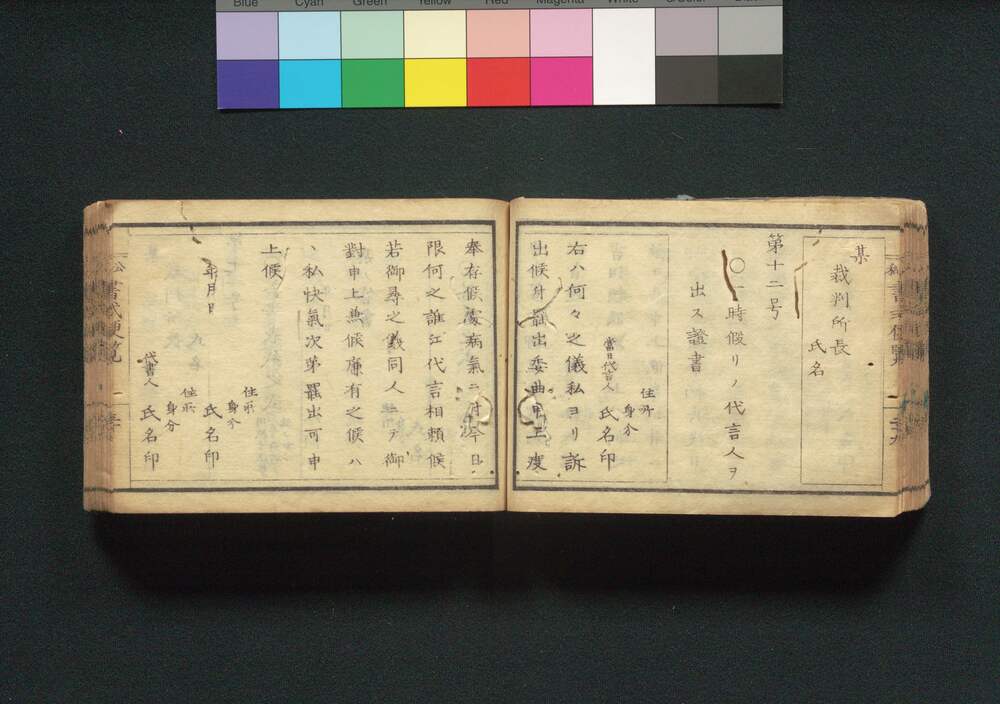 Blue Cyan Green Yellow Red Magenta White 3/Color Black
某
裁判所長
氏名
第十二号
○一時假リノ代言人ヲ
出ス證書
住所
身分
當日代言人 氏名印
右ハ何々之儀私ヨリ訴
出候ニ付罷出委曲申上度
奉存候處病氣ニ付今日
限何之誰江代言相頼候
若御尋之儀同人ニテ御
對申上兼候廉有之候ハ
ヽ私快氣次第罷出可申
上候
住所
身分
年月日 氏名印
住所
身分
代書人 氏名印